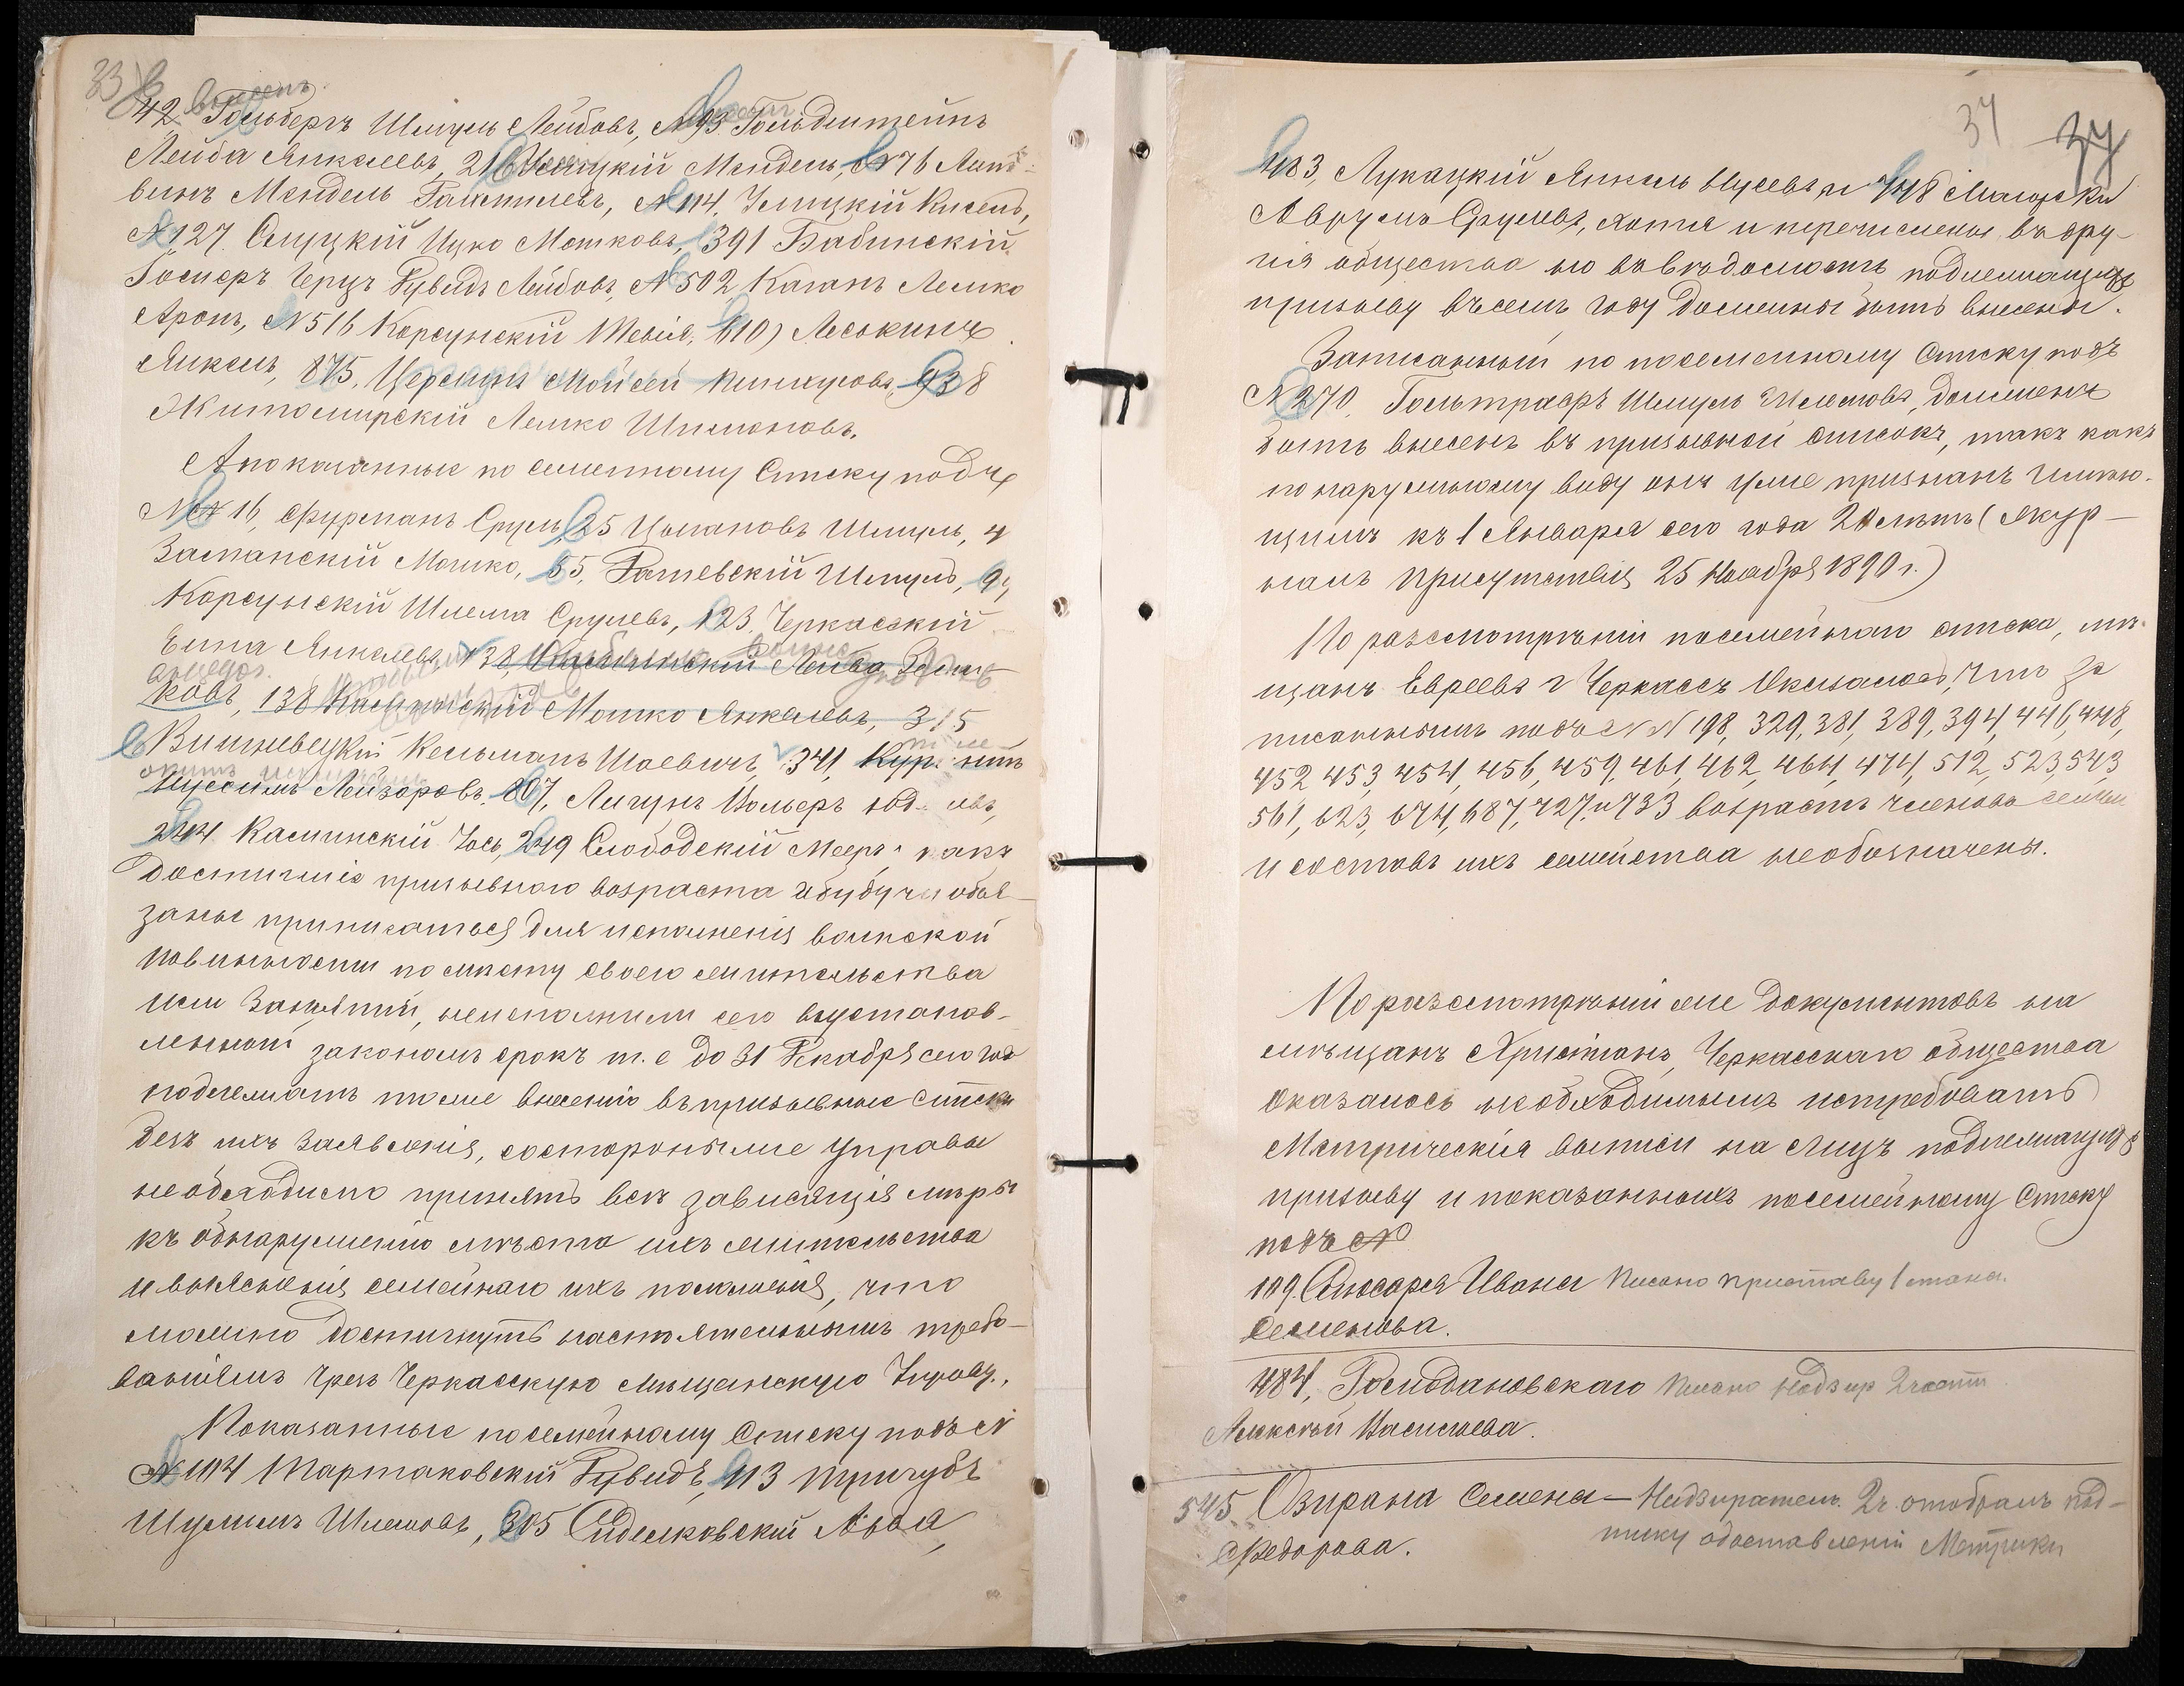 33
внесенъ
42 Гольбергъ Шмуль Лейбовъ, №93 Гольдштейнъ
Лейба Янкелевъ, 216 Менделъ, №76 Лит-
винъ Мендель №114, Кисель,
№127. Слуцкій Ицко Мошковъ, 391 Бабинскій
Герцъ Лейбовъ, №502 Каганъ Лешко
Аронъ, №516 Корсунскій Тевія, 610) Леськинъ
Янкель, 875, Мойсей Пинхусовъ, 938
Житомирскій Лешко Шимоновъ.
А показанные по семейному списку подъ
№№ 16, Фурманъ Сруль, 25 Цымановъ Шмуль, 4
Заславскій Мошко, 55, Рашевскій Шмуль, 9,
Корсунскій Шлема Срулевъ, 123, Черкасскій
Елиа Янкелевъ, 38, Лейба
ковъ, 138 Каминскій Мошко Янкелевъ, 315
Вишневецкій Кельманъ Шаевичъ, 341,
Лейзоровъ, 807, Лигунъ Вольфъ
244 Каминскій Іось, 249 Слободскій Мееръ, какъ
достигшіе призывного возраста и будучи обя-
заны приписаться для исполненія воинской
повинности по мѣсту своего жительства
или занятій, не исполнили сего въ установ-
ленный закономъ срокъ т. е до 31 Декабря сего года
подлежатъ тоже внесенію въ призывные списки
безъ ихъ заявленія, со стороны же Управы
необходимо принять всѣ зависящія мѣры
къ обнаруженію мѣста ихъ жительства
и выясненія семейнаго ихъ положенія, что
можно достигнуть настоятельнымъ требо-
ваніемъ чрезъ Черкасскую Мѣщанскую Управу.
Показанные по семейному списку подъ №
№ 104 Тартаковскій Дувидъ, 113 Тригубъ
Шулимъ Шлемовъ, 305 Сидельковскій Абой,
34 34
483, Лукацкій Янкель Нусевъ и 448
Аврумъ Срулевъ, хотя и перечислены въ дру-
гія общества но подлежащіе
призыву въ семъ году должны быть внесены.
Записанный по посемейному списку подъ
№ 270, Гольтрафъ Шмуль Шлемовъ, долженъ
быть внесенъ въ призывной списокъ, такъ какъ
по наружному виду онъ уже признанъ имѣю-
щимъ къ 1 Января сего года 20 лѣтъ (Жур-
налъ Присутствія 25 Ноября 1890 г.)
По разсмотрѣніи посемейнаго списка, мѣ-
щанъ Евреевъ г Черкассъ оказалось, что за
писаннымъ подъ №№ 198, 329, 381, 389, 394, 446, 448,
452 453, 454, 456, 459, 461, 462, 464, 474, 512, 523, 543
561, 623, 674, 687, 727, и 733 возрастъ членовъ семьи
и составъ ихъ семейства необозначены.
По разсмотрѣніи же документовъ на
мѣщанъ Христіанъ, Черкасскаго общества
оказалось необходимымъ истребовать
Метрическія выписи на лицъ подлежащихъ
призыву и показанныхъ посемейному Списку
подъ №
109. Слюсаря Ивана Писано приставу 1 стана.
Семенова.
484, Госиодановскаго Писано Надзир 2 части
Алексѣй Васильева.
545 Озирана Семена — Надзиратель 2 ч. отобралъ под-
писку о доставленіи Метрики
Федорова.